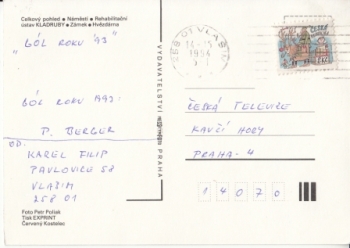 Celkový pohled ● Náměstí ● Rehabilitační
ústav KLADRUBY ● Zámek ● Hvězdárna
"GÓL ROKU '93"
GÓL ROKU 1993:
P. BERGER
OD:
KAREL FILIP
PAVLOVICE 58
VLAŠIM
258 01
Foto Petr Pošek
Tisk EXPRINT
Červený Kostelec
VYDAVATELSTVÍ
PRAHA
258 01 VLAŠIM
1994
ČESKÁ TELEVIZE
KAVČÍ HORY
PRAHA - 4
14070